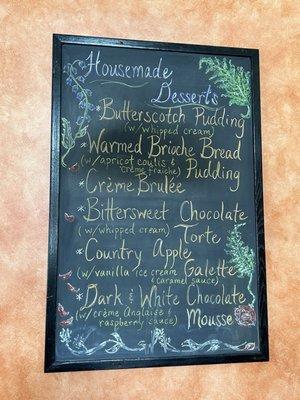 Homemade
Desserts
*Butterscotch Pudding
(w/whipped cream)
*Warmed Brioche Bread
(w/apricot coulis &
crème fraîche) Pudding
*Crème Brulée
*Bittersweet Chocolate
(w/whipped cream) Torte
*Country Apple
(w/vanilla ice cream Galette
& caramel sauce)
*Dark & White Chocolate
(w/crème Anglaise &
raspberry sauce) Mousse